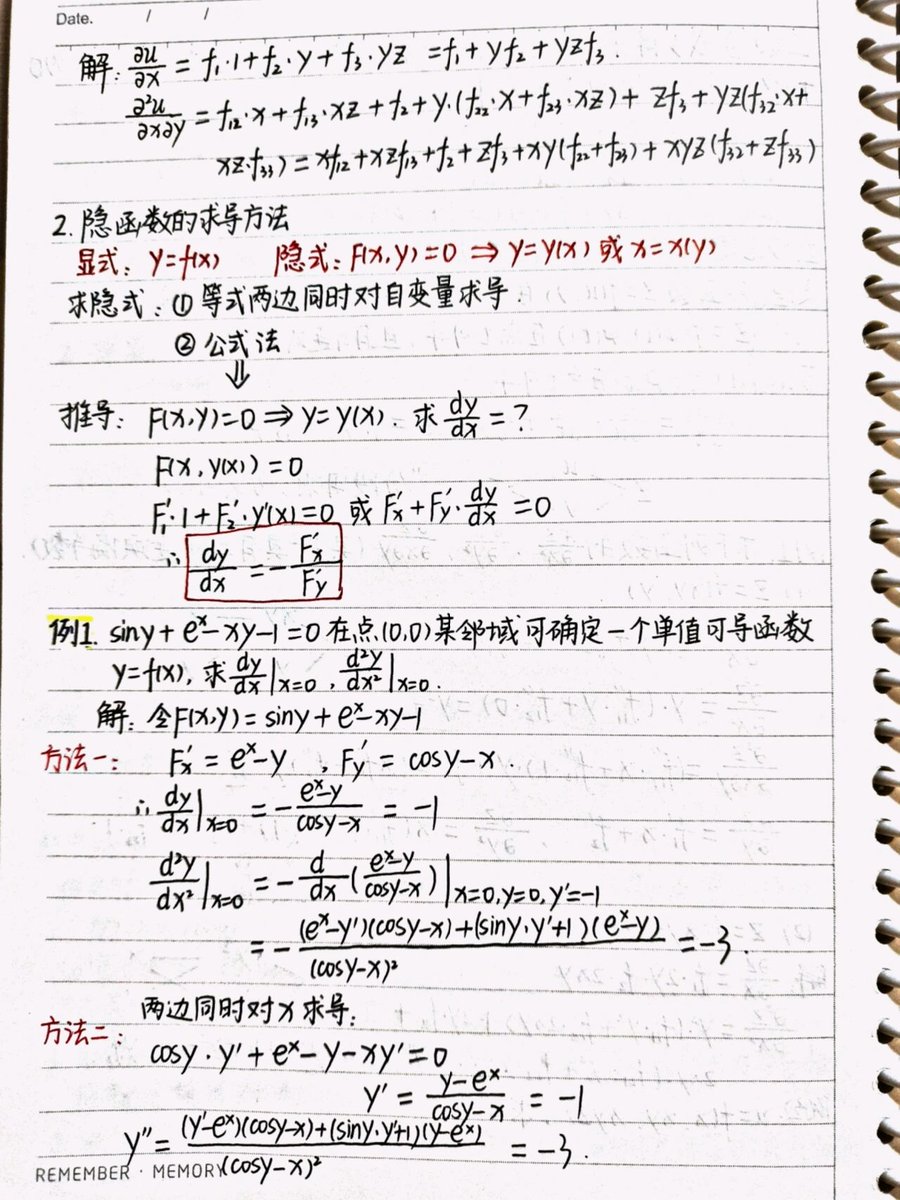 Date. / /
解: ∂u/∂x = f₁·1+f₂·y+f₃·yz = f₁+yf₂+yzf₃.
∂²u/∂x∂y = f₁₂·x+f₁₃·xz+f₂+y·(f₂₂·x+f₂₃·xz)+zf₃+yz(f₃₂·x+
xz·f₃₃)=xf₁₂+xzf₁₃+f₂+zf₃+xy(f₂₂+f₂₃)+xyz(f₃₂+zf₃₃)
2. 隐函数的求导方法
显式: y=f(x) 隐式: F(x,y)=0 ⇒ y=y(x) 或 x=x(y)
求隐式: ① 等式两边同时对自变量求导.
② 公式法
⇓
推导: F(x,y)=0 ⇒ y=y(x). 求 dy/dx = ?
F(x,y(x))=0
F₁'·1+F₂'·y'(x)=0 或 Fx'+Fy'·dy/dx=0
∴ dy/dx = -Fx'/Fy'
例1. siny+eˣ-xy-1=0 在点(0,0)某邻域可确定一个单值可导函数
y=f(x), 求 dy/dx|x=0, d²y/dx²|x=0.
解: 令F(x,y)=siny+eˣ-xy-1
方法一: Fx'=eˣ-y, Fy'=cosy-x.
∴ dy/dx|x=0 = -(eˣ-y)/(cosy-x) = -1
d²y/dx²|x=0 = -d/dx((eˣ-y)/(cosy-x))|x=0,y=0,y'=-1
= -((eˣ-y')(cosy-x)+(siny·y'+1)(eˣ-y))/(cosy-x)² = -3.
方法二: 两边同时对x求导:
cosy·y'+eˣ-y-xy'=0
y' = (y-eˣ)/(cosy-x) = -1
y'' = ((y'-eˣ)(cosy-x)+(siny·y'+1)(y-eˣ))/(cosy-x)² = -3.
REMEMBER · MEMORY